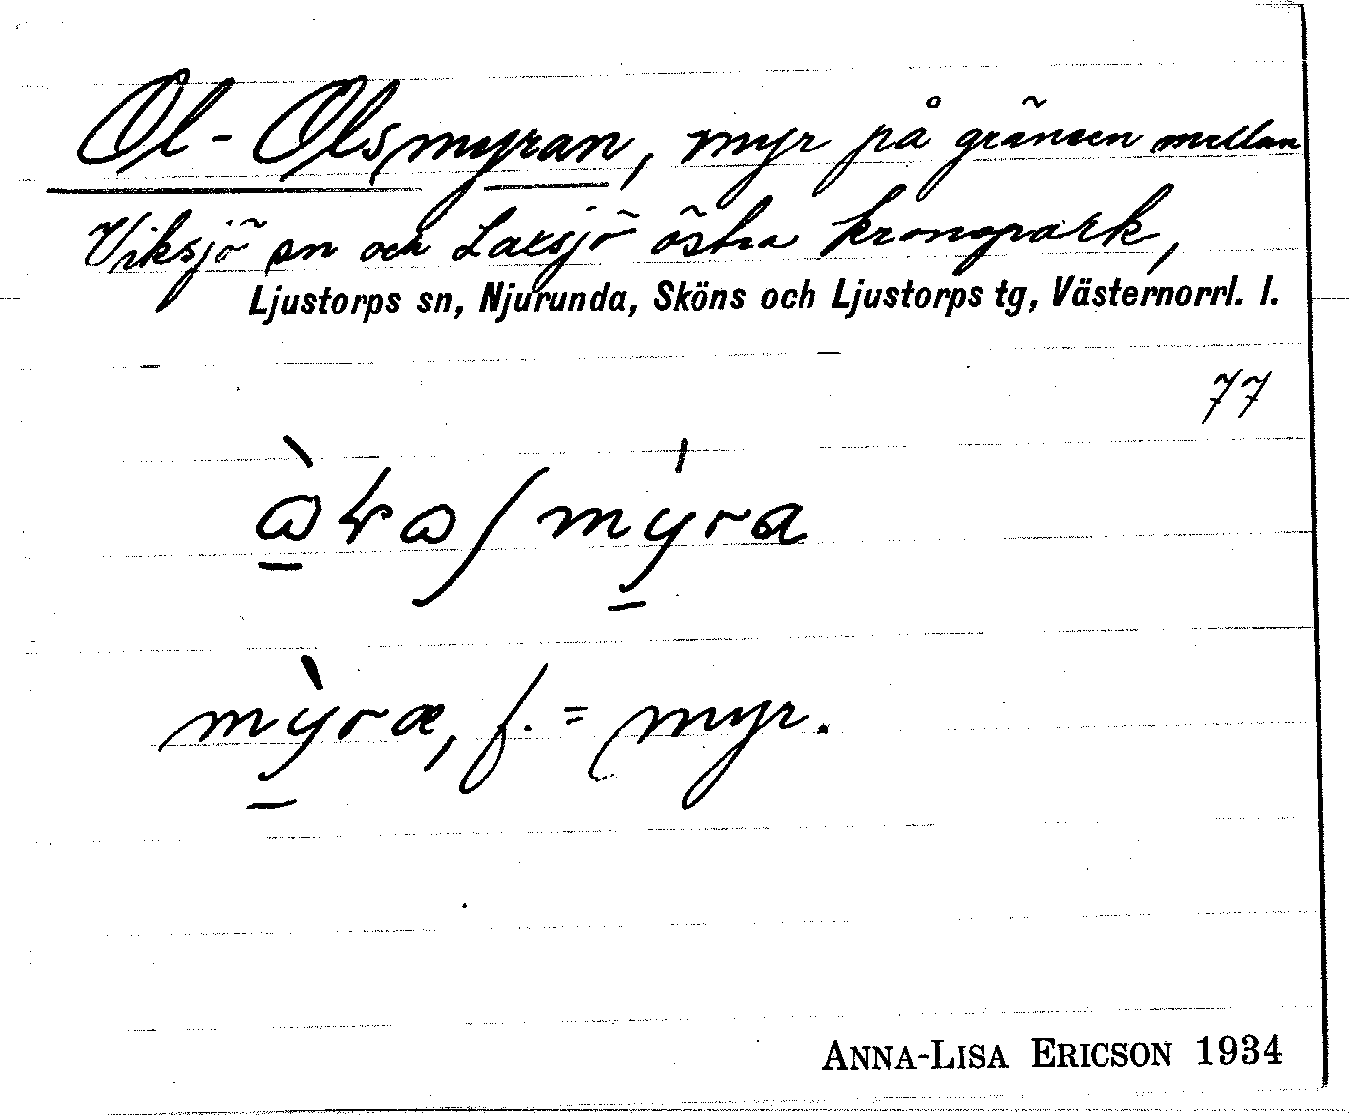 Ol-Olsmyran, myr på gränsen mellan
Viksjö sn och Laxsjö östra kronopark,
Ljustorps sn, Njurunda, Sköns och Ljustorps tg, Västernorrl. l.
77
mỳræ, f. = myr.
ANNA-LISA ERICSON 1934